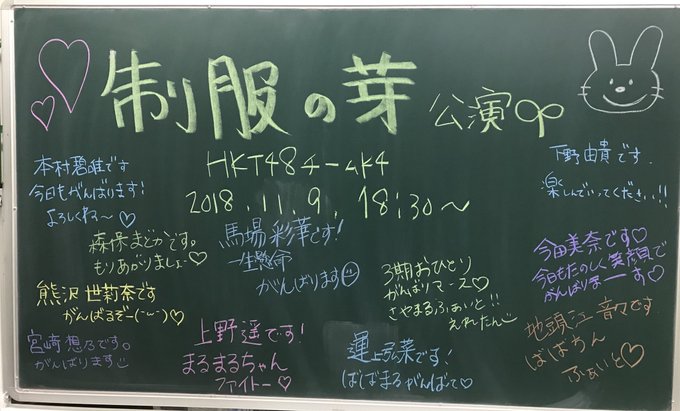 制服の芽 公演
HKT48チームK4
2018.11.9. 18:30〜
本村碧唯です
今日もがんばります!
よろしくね〜♡
下野由貴です.
楽しんでいってください!!
森保まどかです。
もりあがりましょ〜♡
馬場彩華です!
一生懸命
がんばります☺
熊沢世莉奈です
がんばるぞー(・ᴗ・)♡
3期おひとり
がんばりマース♡
さやまるふぁいと!!
えれたん
今田美奈です♡
今日もたのしく笑顔で
がんばりまーす♡
宮﨑想乃です。
がんばります
上野遥です!
まるまるちゃん
ファイトー♡
運上弘菜です!
ばばまるがんばって♡
地頭江音々です.
ばばちん
ふぁいと♡